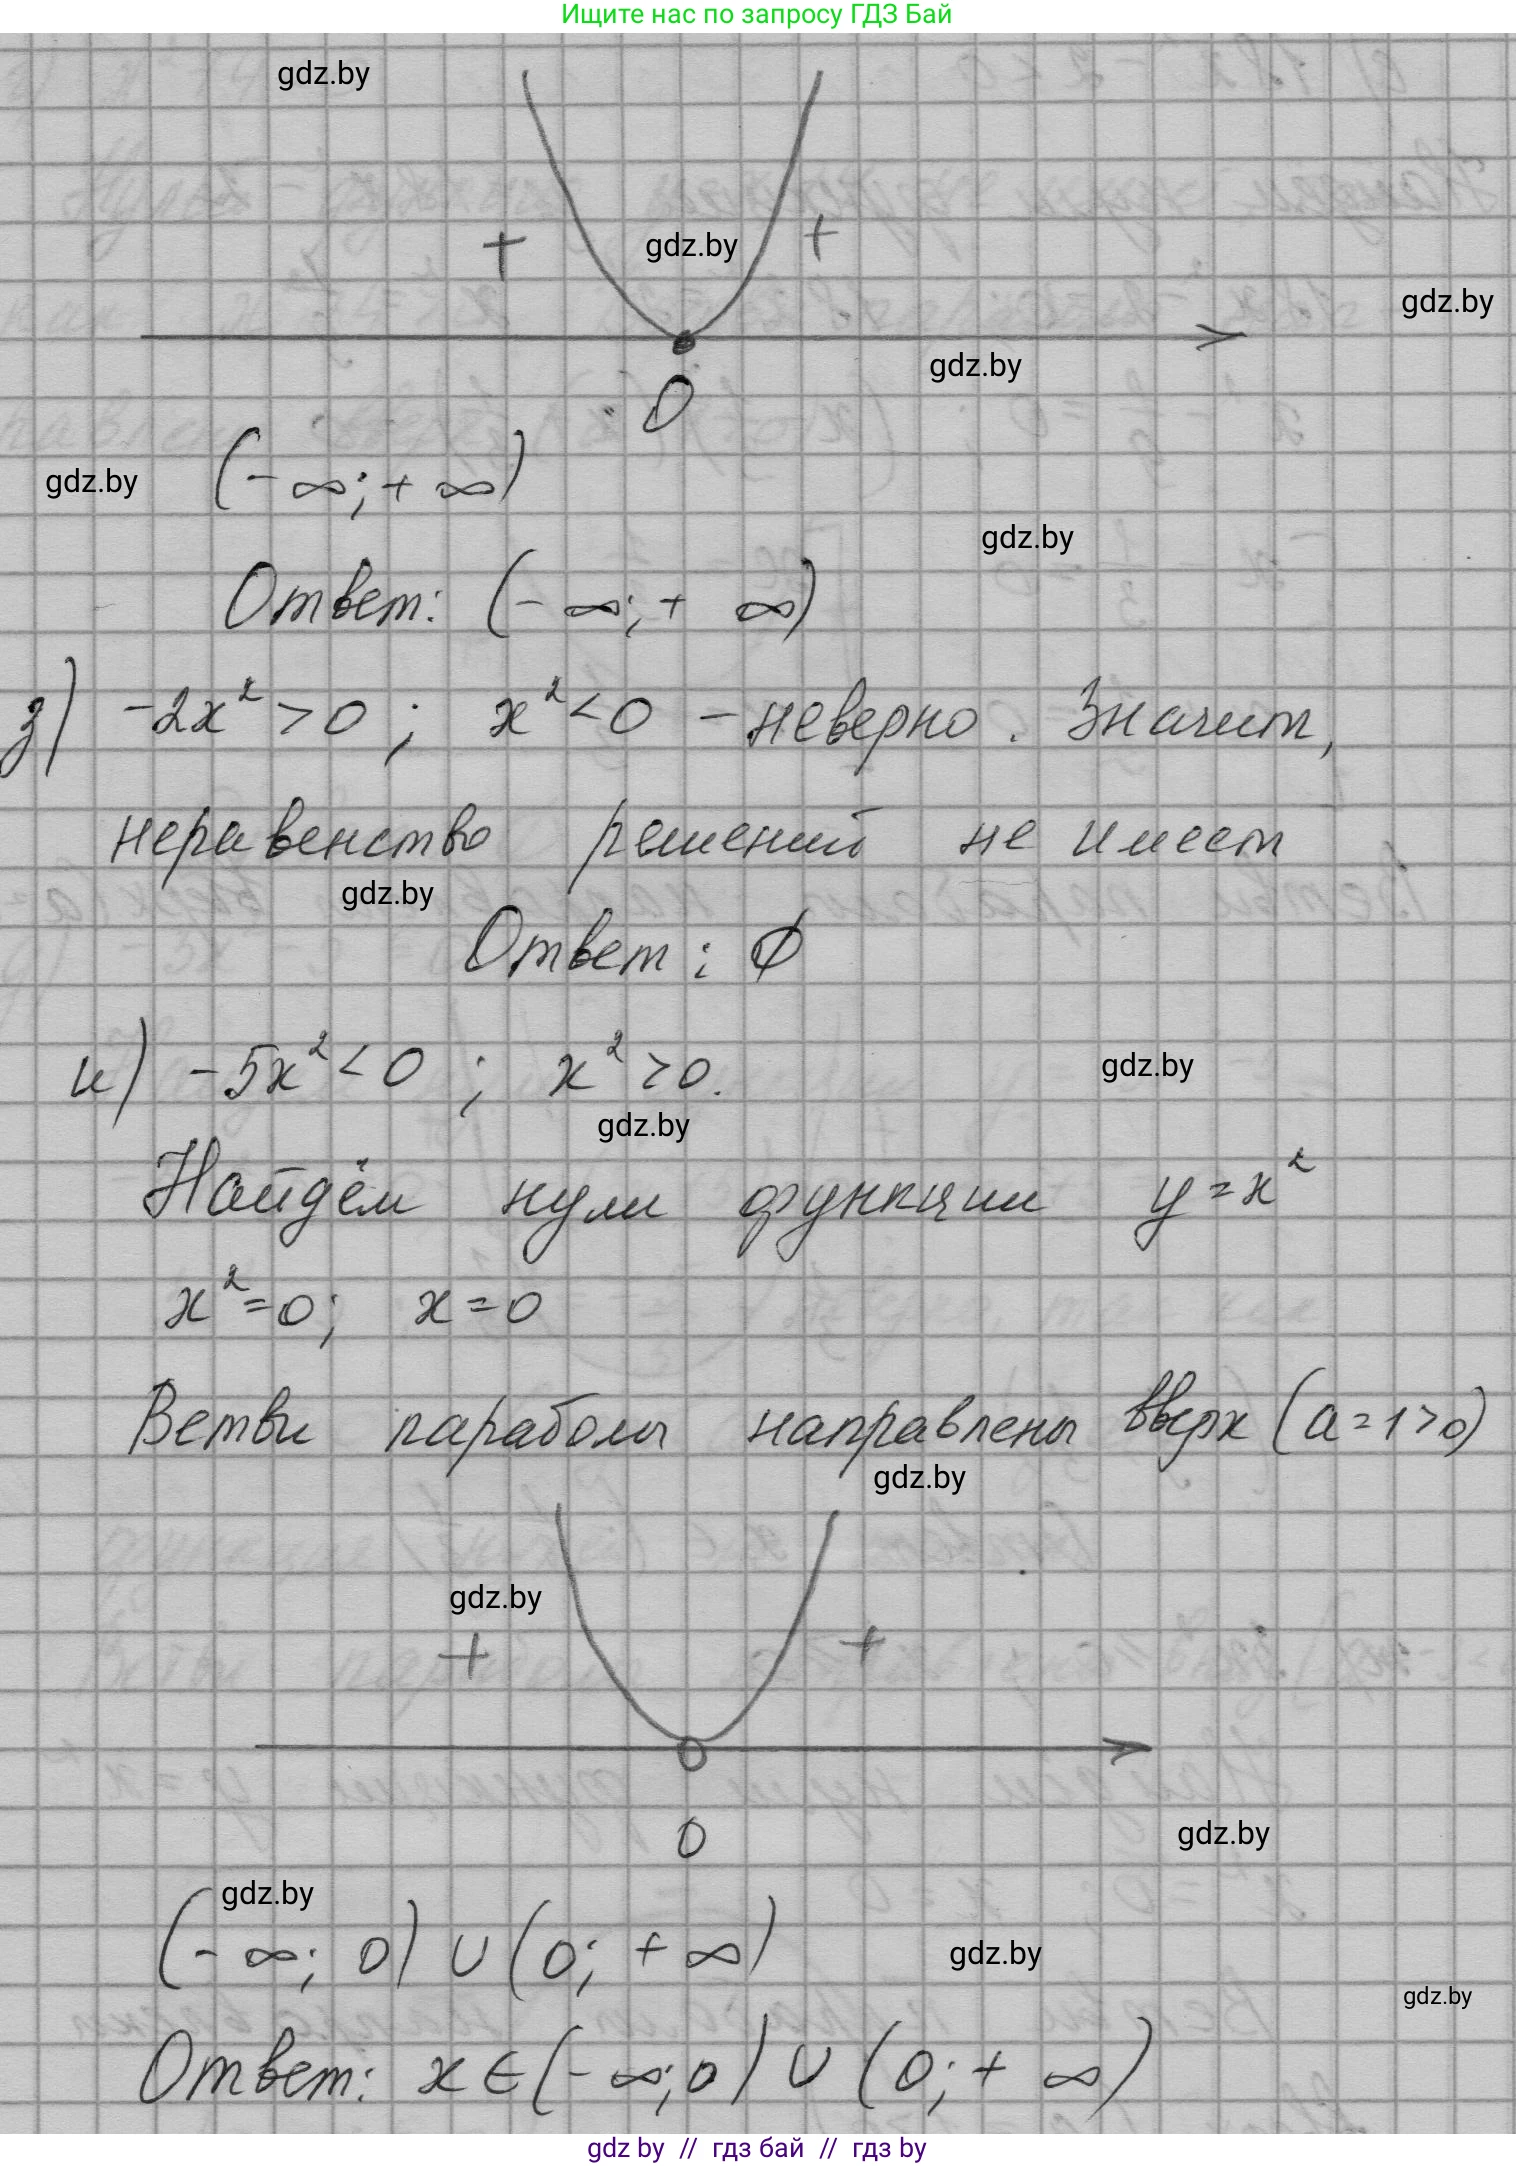 Ищите нас по запросу ГДЗ Бай
gdz.by
+ gdz.by +
gdz.by
gdz.by
0
(-∞;+∞)
gdz.by
gdz.by
Ответ: (-∞;+∞)
з) -2x²>0; x²<0 - неверно. Значит,
неравенство решений не имеет
gdz.by
Ответ: ∅
и) -5x²<0; x²>0.
gdz.by
gdz.by
Найдём нули функции y=x²
x²=0; x=0
Ветви параболы направлены вверх (a=1>0)
gdz.by
gdz.by
+ +
0
gdz.by
gdz.by
(-∞; 0)∪(0; +∞)
gdz.by
gdz.by
Ответ: x∈(-∞;0)∪(0;+∞)
gdz by // гдз бай // гдз by